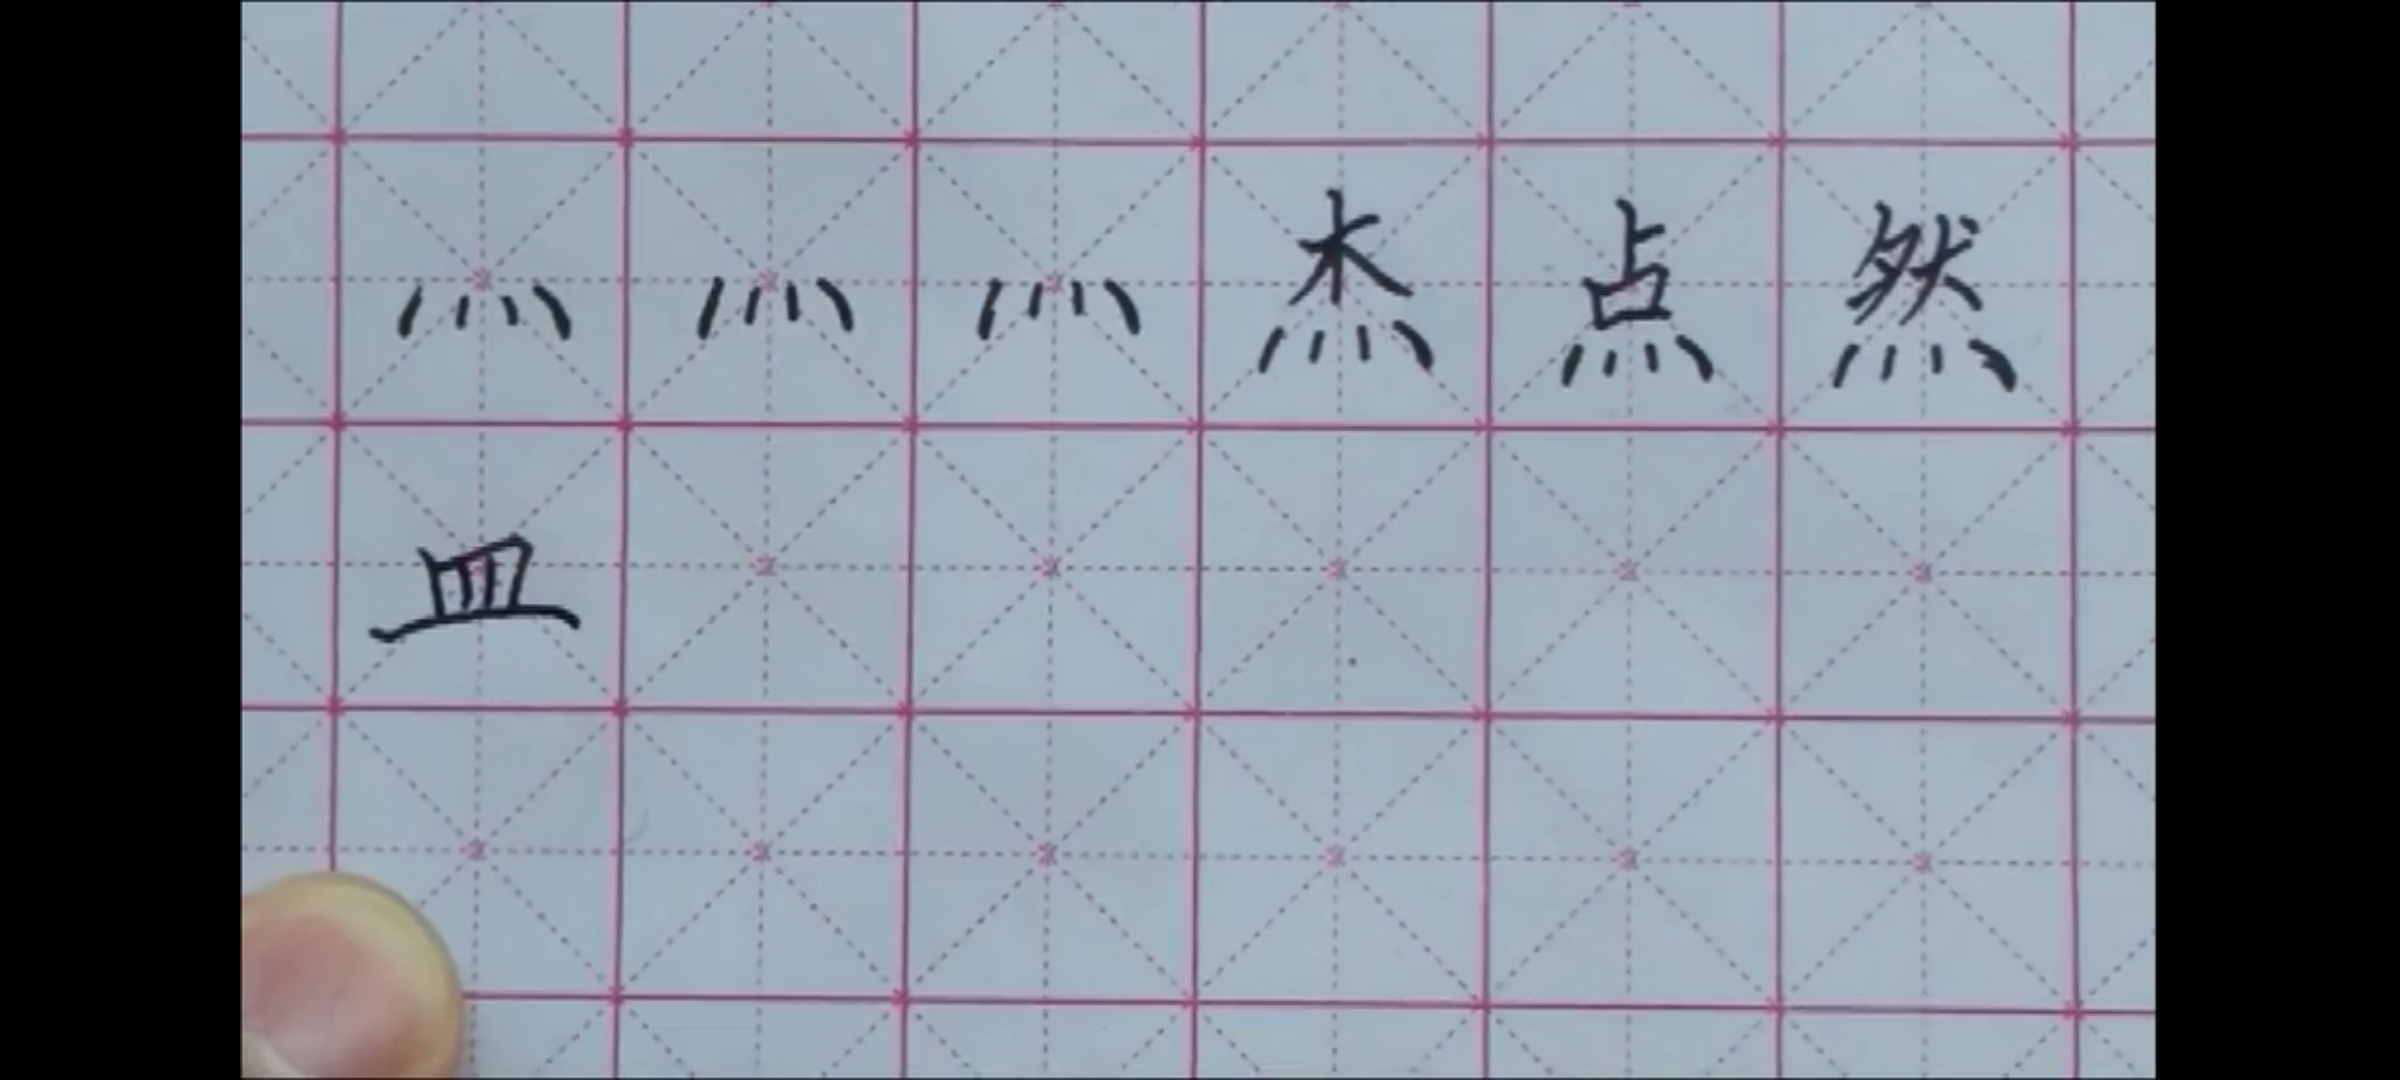 灬灬灬杰点然
皿